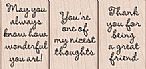 May you
always
know how
wonderful
you are!
You're
one of
my nicest
thoughts
Thank
you for
being
a great
friend